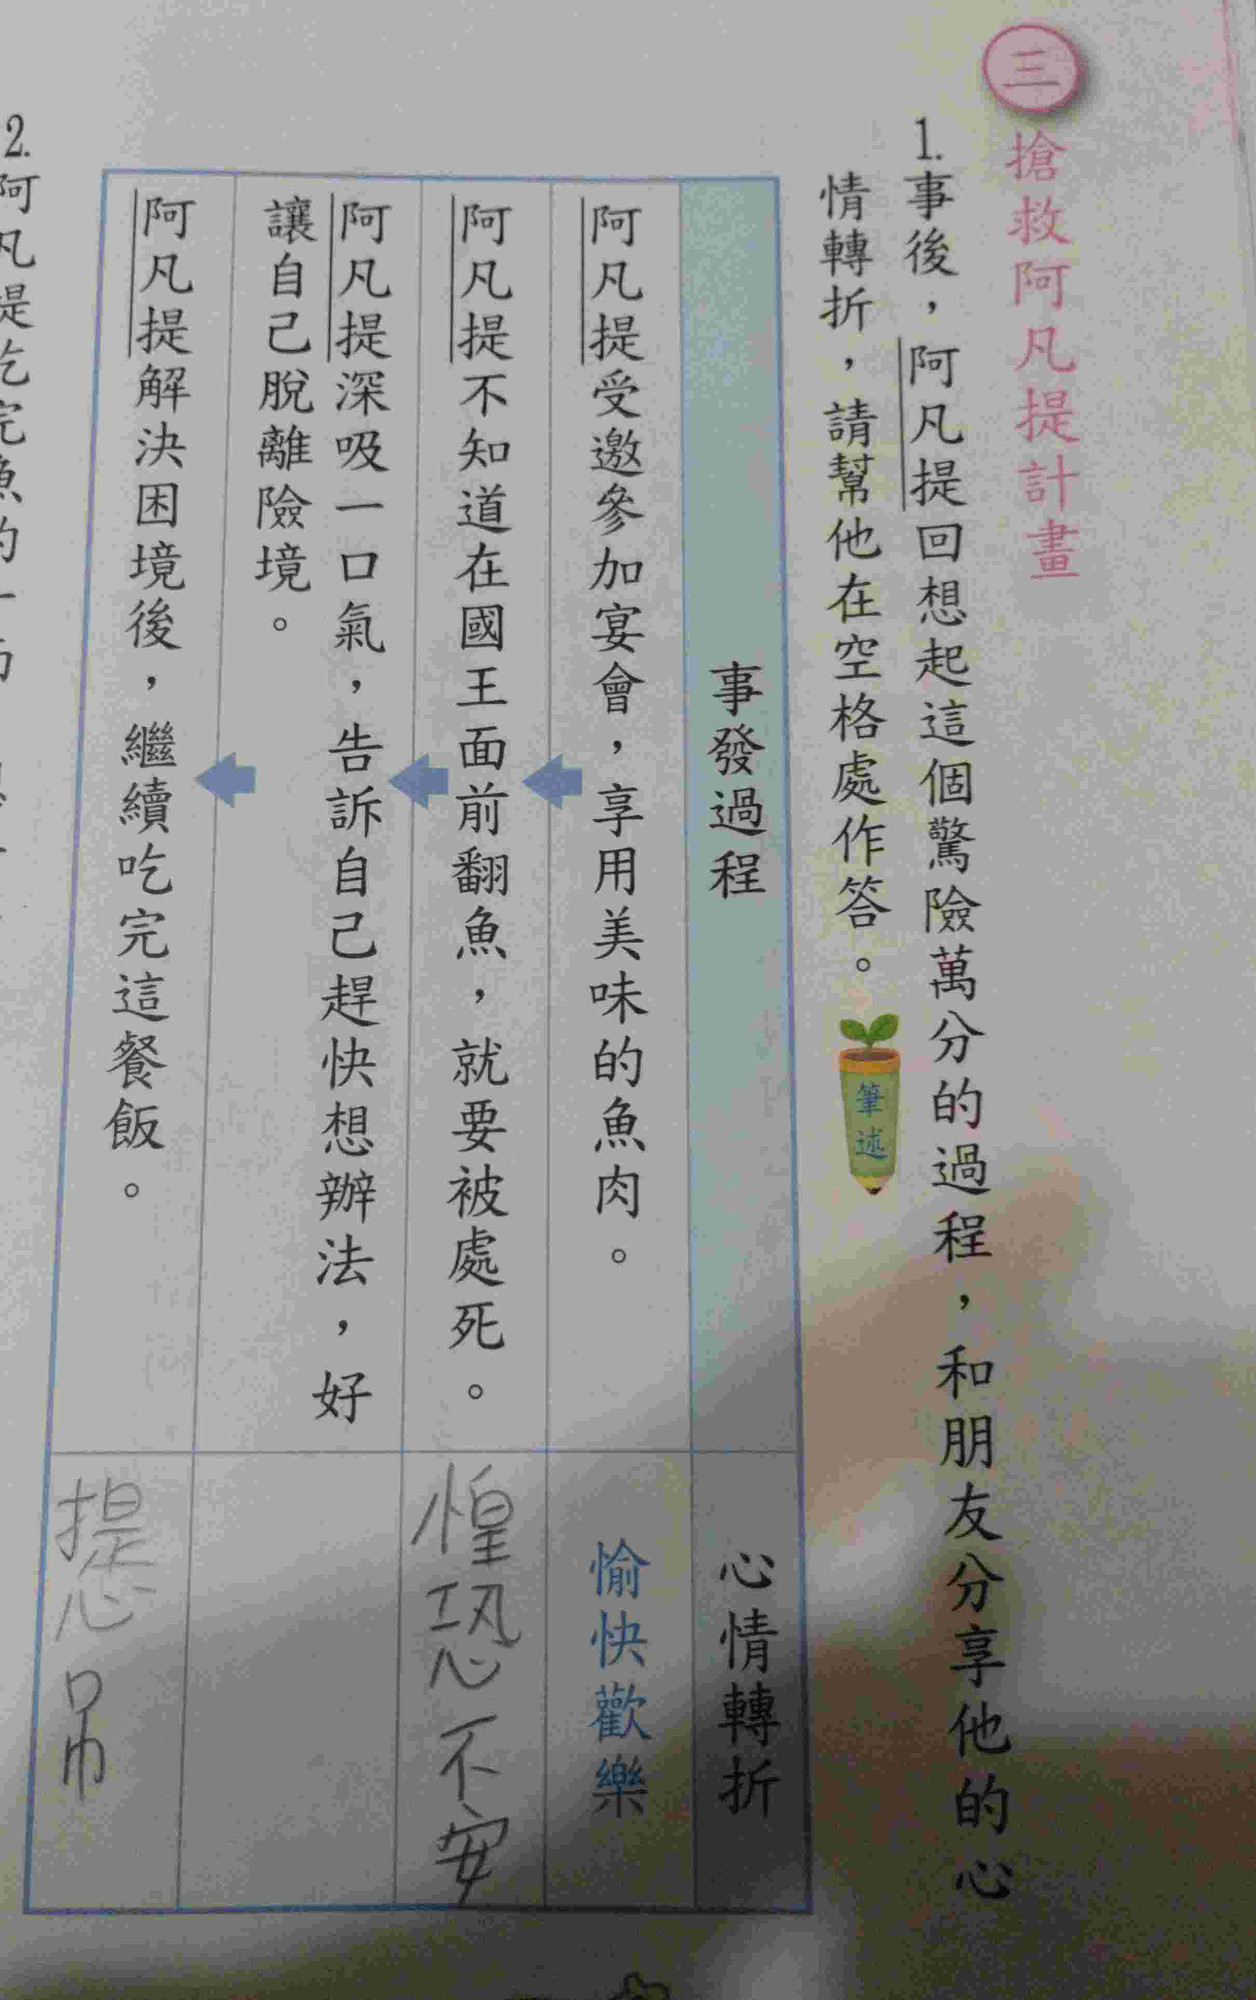 三 搶救阿凡提計畫
1.事後，阿凡提回想起這個驚險萬分的過程，和朋友分享他的心
情轉折，請幫他在空格處作答。筆述
事發過程
心情轉折
阿凡提受邀參加宴會，享用美味的魚肉。
愉快歡樂
阿凡提不知道在國王面前翻魚，就要被處死。
惶恐不安
阿凡提深吸一口氣，告訴自己趕快想辦法，好
讓自己脫離險境。
阿凡提解決困境後，繼續吃完這餐飯。
提心吊
2.阿凡提吃完魚的一